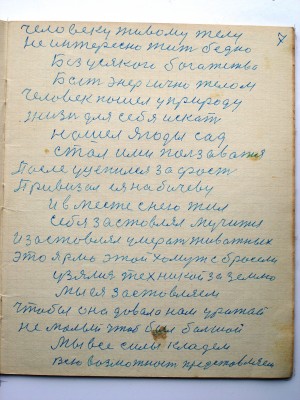 7
человеку живому телу
не интересно жить бедно
Без усякого богатства
Быть энергично телом
Человек пошел уприроду
жизн для себя искат
нашел ягоды сад
стал ими ползаватя
После уцепился за рост
Привизал я на бичеву
И в месте снею жил
себя заставлял мучится
И заставлял умерат животных
Это ярмо этой хомут сбросели
узялися техникой за землю
мы ея заставляем
чтобы она довала нам уражай
не малый чтоб был балшой
Мы все силы кладем
всю возможност представляем